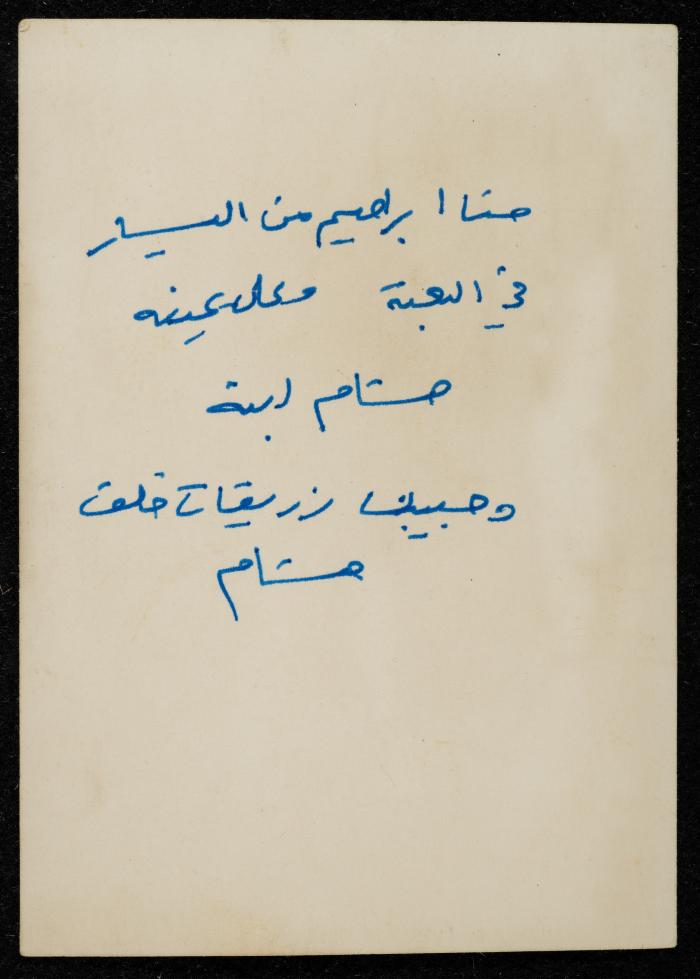 حنا ابراهيم من اليسار
في البعنة وعلى يمينه
هشام ابنه
وحبيب زريقات خلف
هشام